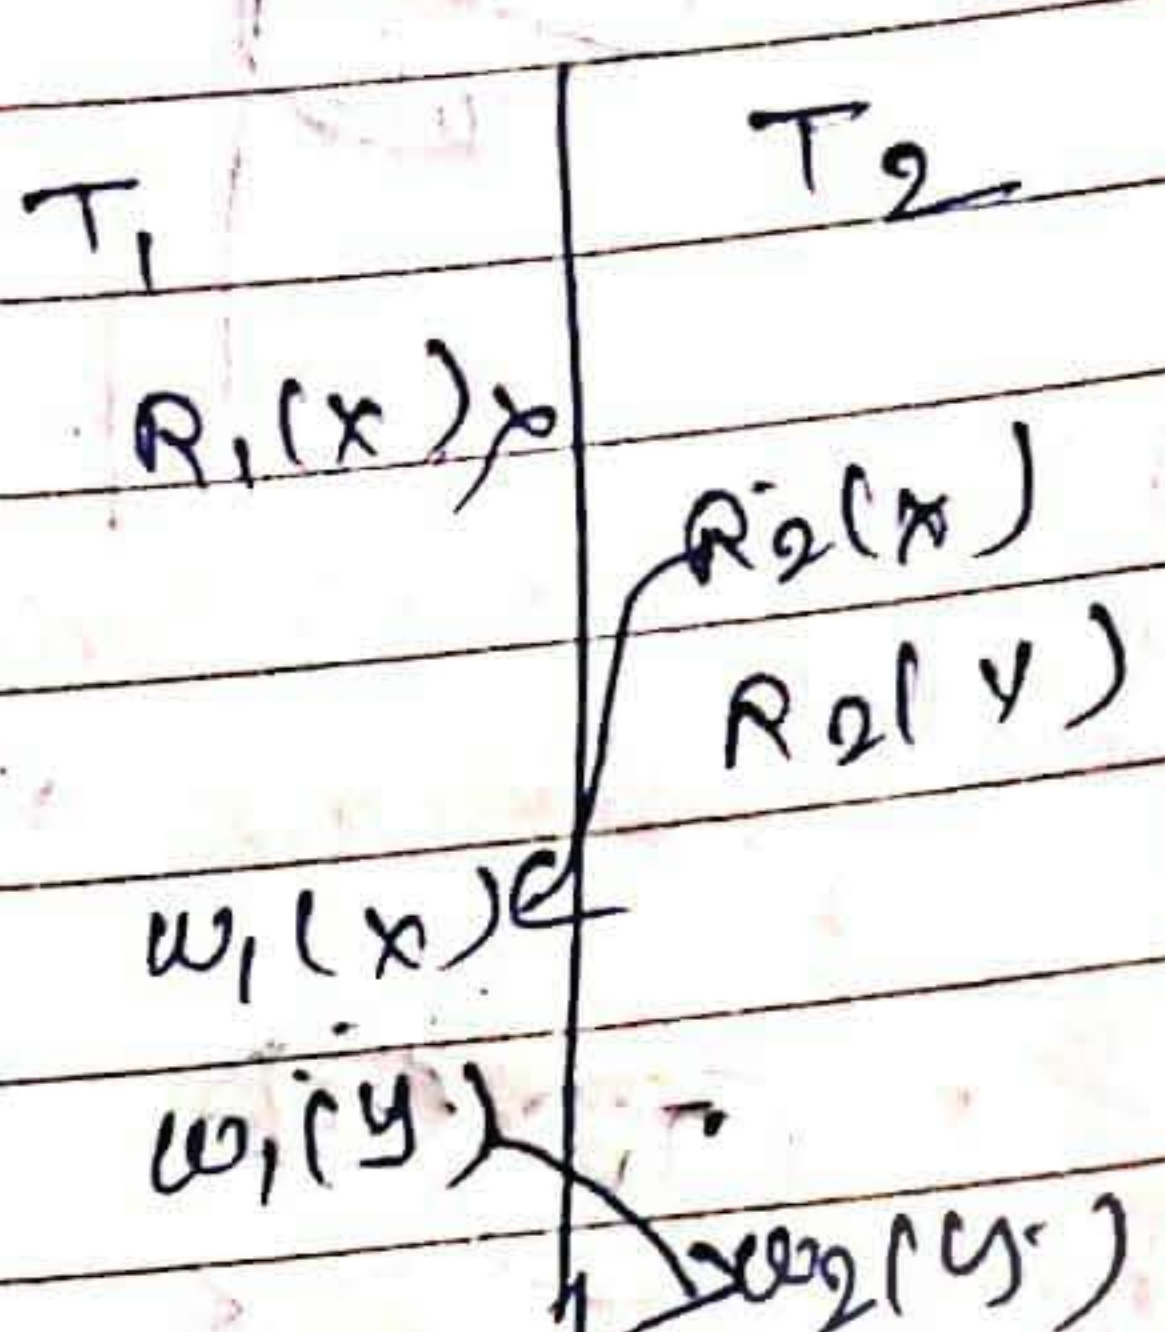 T1 T2
R1(x)
R2(x)
R2(y)
W1(x)
W1(y)
W2(y)